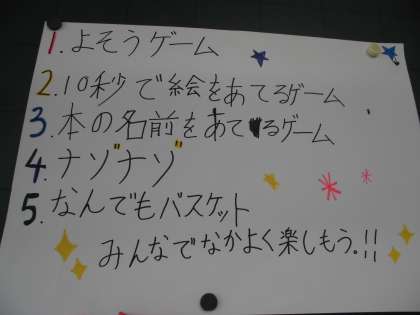 1.よそうゲーム
2.10秒で絵をあてるゲーム
3.本の名前をあてるゲーム
4.ナゾナゾ
5.なんでもバスケット
みんなでなかよく楽しもう。!!